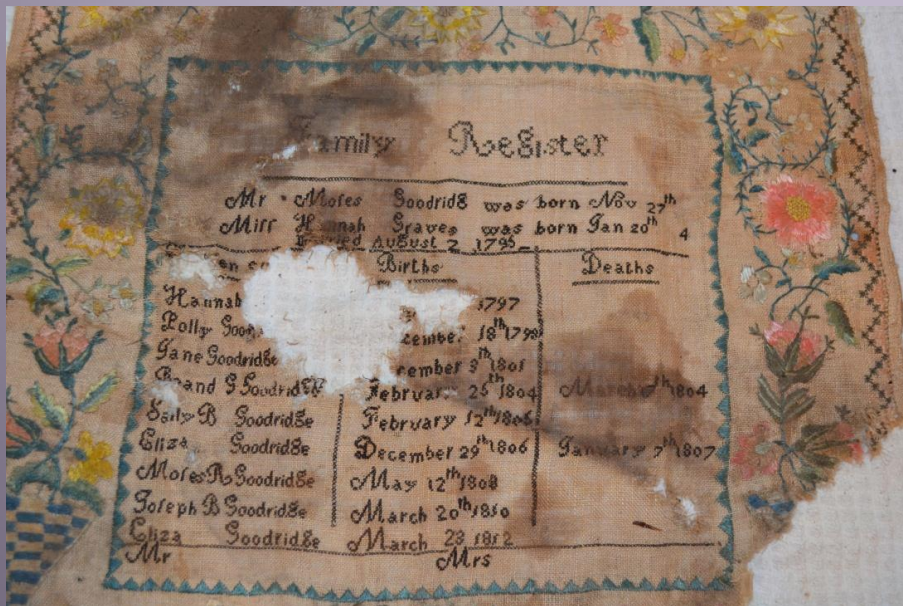 Family Register
Mr Moses Goodridg was born Nov 27th
Miss Hannah Graves was born Jan 20th 4
August 2 1795
Births Deaths
Hannah 1797
Polly 18th 1799
Jane Goodridge 9th 1801
G Goodridge February 26th 1804 March 1804
Sally B Goodridge February 12th 1806
Eliza Goodridge December 29th 1806 January 7th 1807
Moses R Goodridge May 12th 1808
Joseph B Goodridge March 20th 1810
Eliza Goodridge March 23 1812
Mr Mrs